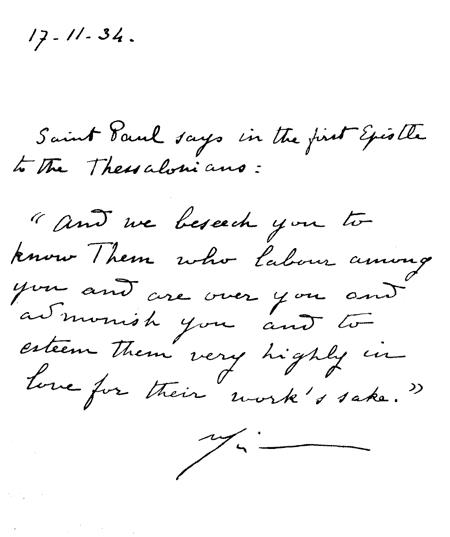 17-11-34.
Saint Paul says in the first Epistle
to the Thessalonians:
"And we beseech you to
know Them who labour among
you and are over you and
admonish you and to
esteem them very highly in
love for their work's sake."